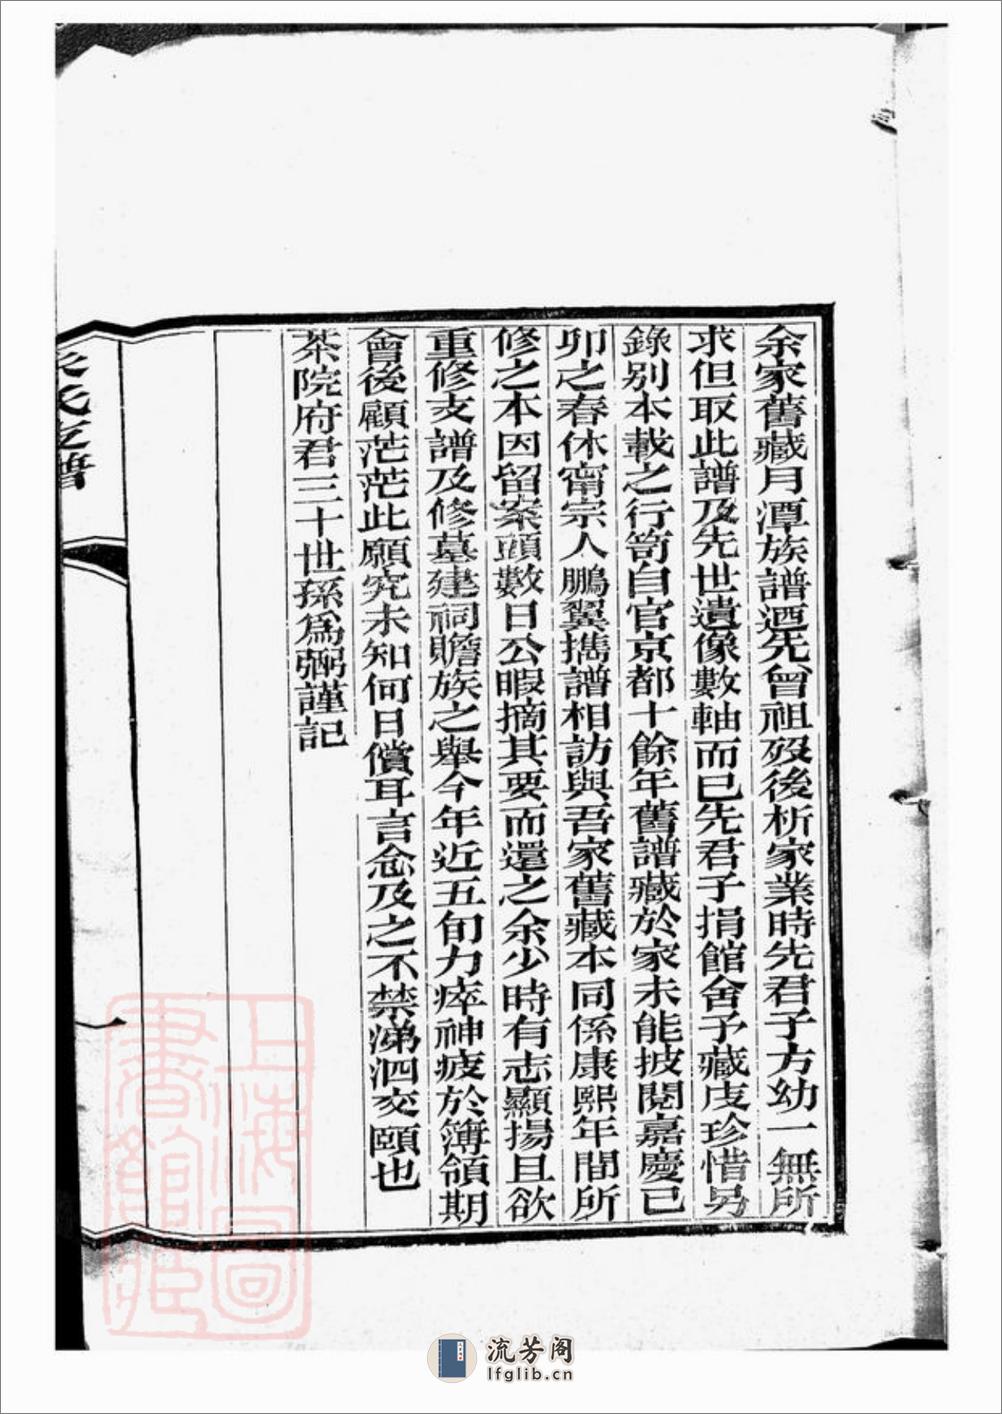 余家舊藏月潭族譜迺先曾祖歿後析家業時先君子方幼一無所
求但取此譜及先世遺像數軸而已先君子捐館舍予藏庋珍惜另
錄别本載之行笥自官京都十餘年舊譜藏於家未能披閱嘉慶己
卯之春休甯宗人鵬翼攜譜相訪與吾家舊藏本同係康熙年間所
修之本因留案頭數日公暇摘其要而還之余少時有志顯揚且欲
重修支譜及修墓建祠贍族之舉今年近五旬力瘁神疲於簿領期
會後顧茫茫此願究未知何日償耳言念及之不禁涕泗交頤也
茶院府君三十世孫爲弼謹記
朱氏支譜
一
上海圖書館藏
流芳阁
lfglib.cn